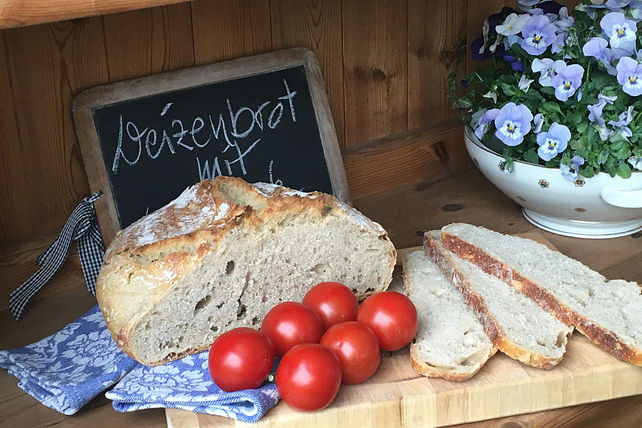 Weizenbrot
mit